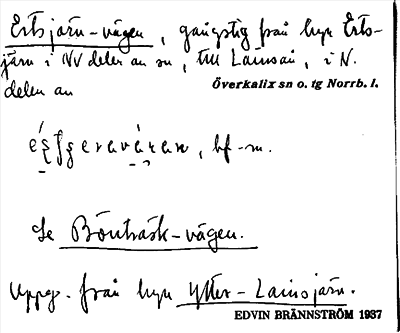 Ertsjärn-vägen, gångstig från byn Erts-
järn i NV delen av sn, till Lainsån, i N.
delen av
Överkalix sn o. tg Norrb. l.
bf.-m.
Se Bönträsk-vägen.
Uppg. från byn Ytter-Lainsjärn.
EDVIN BRÄNNSTRÖM 1937